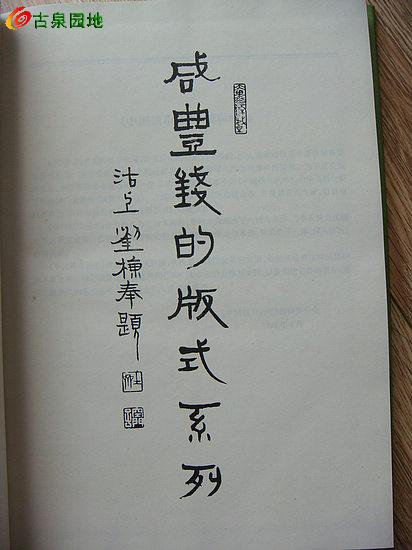 古泉园地
咸豊錢的版式系列
沽上劉棟奉題